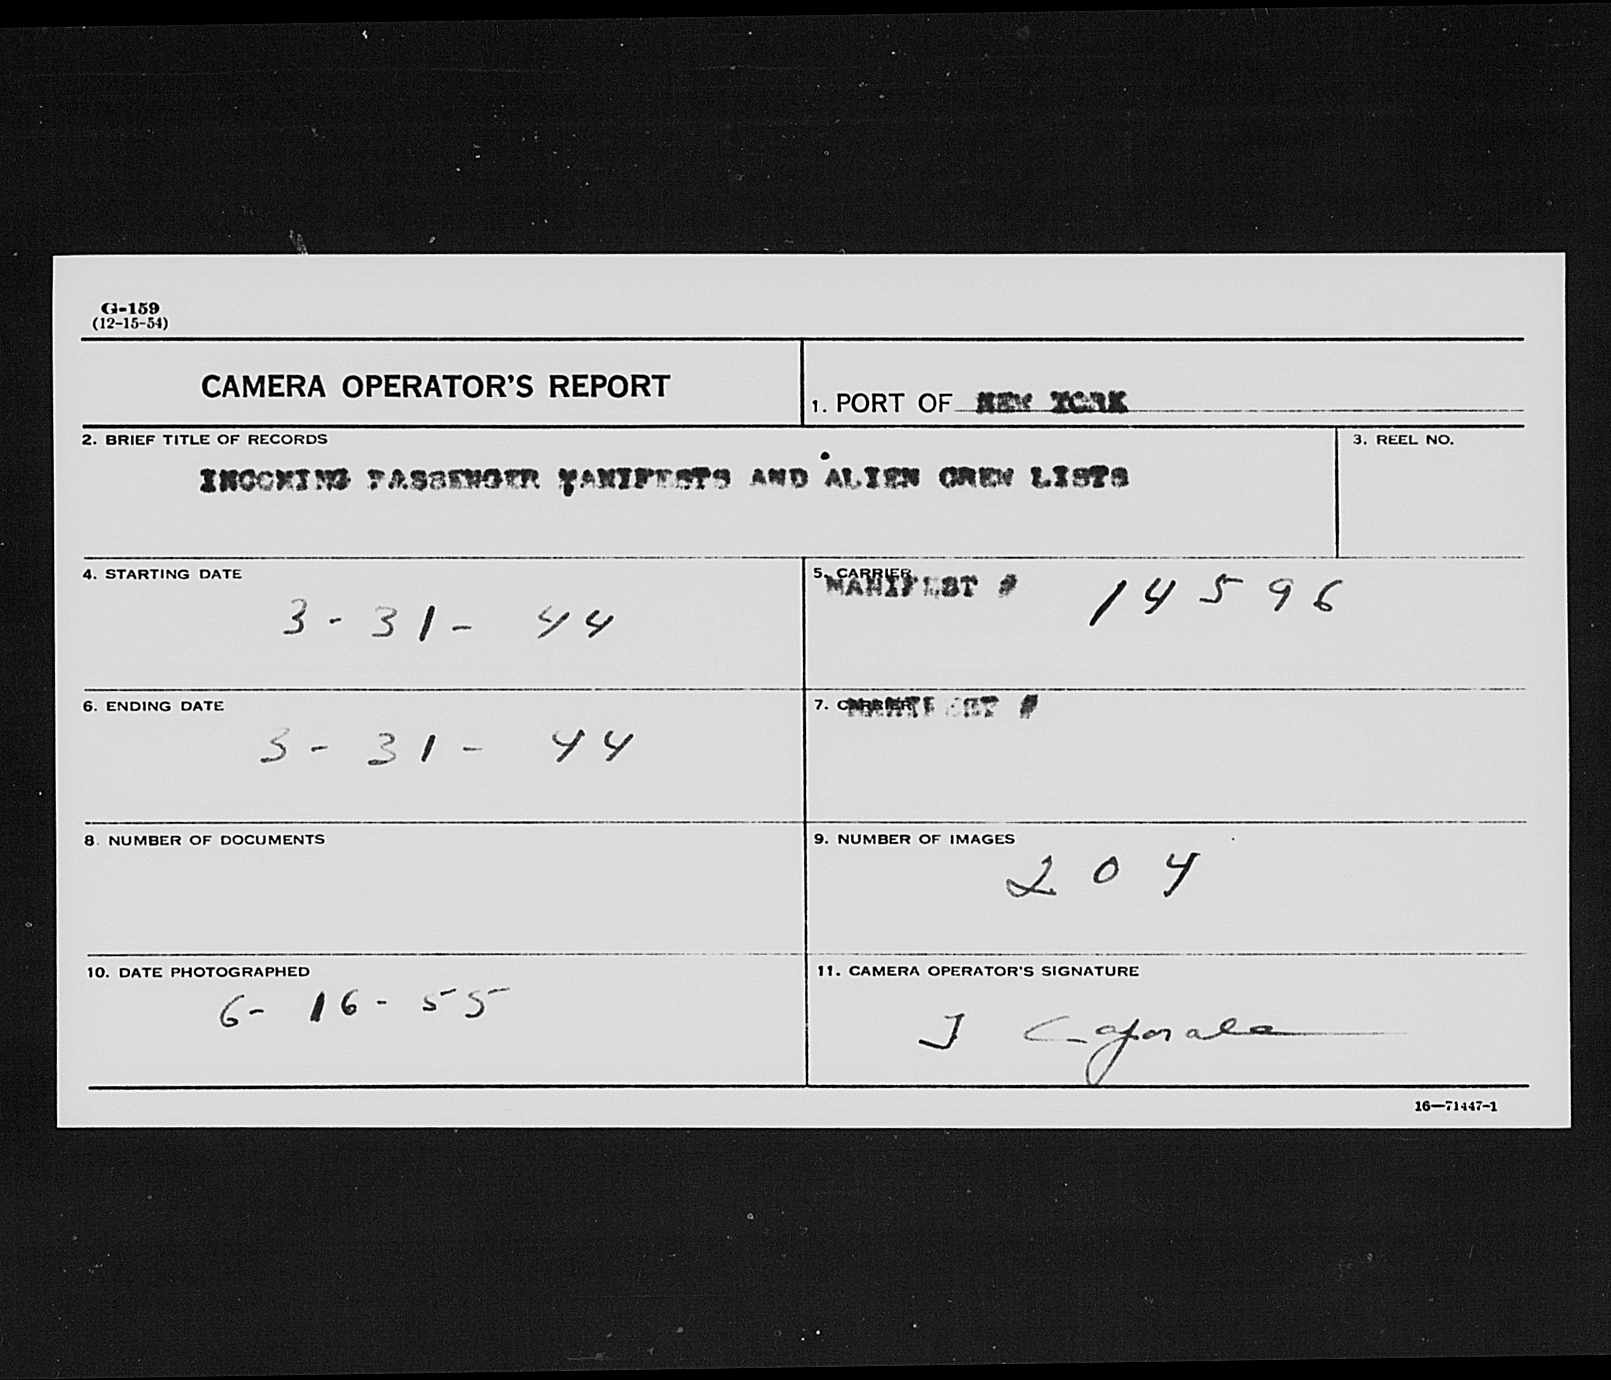 G-159
(12-15-54)
CAMERA OPERATOR'S REPORT
1. PORT OF NEW YORK
2. BRIEF TITLE OF RECORDS
3. REEL NO.
INCOMING PASSENGER MANIFESTS AND ALIEN CREW LISTS
4. STARTING DATE
3-31-44
5. CARRIER
MANIFEST # 14596
6. ENDING DATE
3-31-44
7. CARRIER
MANIFEST #
8. NUMBER OF DOCUMENTS
9. NUMBER OF IMAGES
204
10. DATE PHOTOGRAPHED
6-16-55
11. CAMERA OPERATOR'S SIGNATURE
J Caporale
16—71447-1